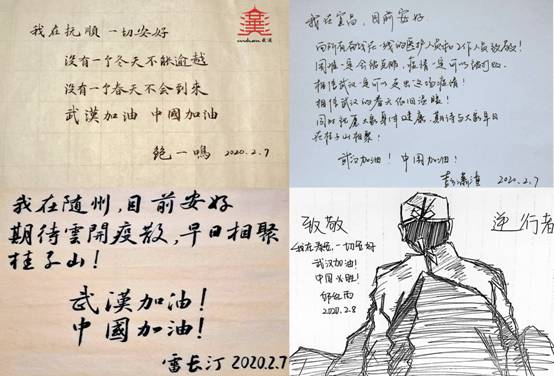 我在抚顺 一切安好
没有一个冬天不能逾越
没有一个春天不会到来
武漢加油 中國加油
鲍一鳴 2020.2.7
wuhan 武漢
我在宜昌,目前安好
向所有奋战在一线的医护人员和工作人员致敬!
困难一定会被克服,疫情一定可以被打败。
相信武汉一定可以走出这场疫情!
相信武汉的春天依旧温暖!
同时祝愿大家身体健康,期待与大家早日
在桂子山相聚!
武汉加油! 中国加油!
2020.2.7
我在随州,目前安好
期待雲開疫散,早日相聚
桂子山!
武漢加油!
中國加油!
雷长汀 2020.2.7
致敬 逆行者
一切安好
武汉加油!
中国必胜!
2020.2.8